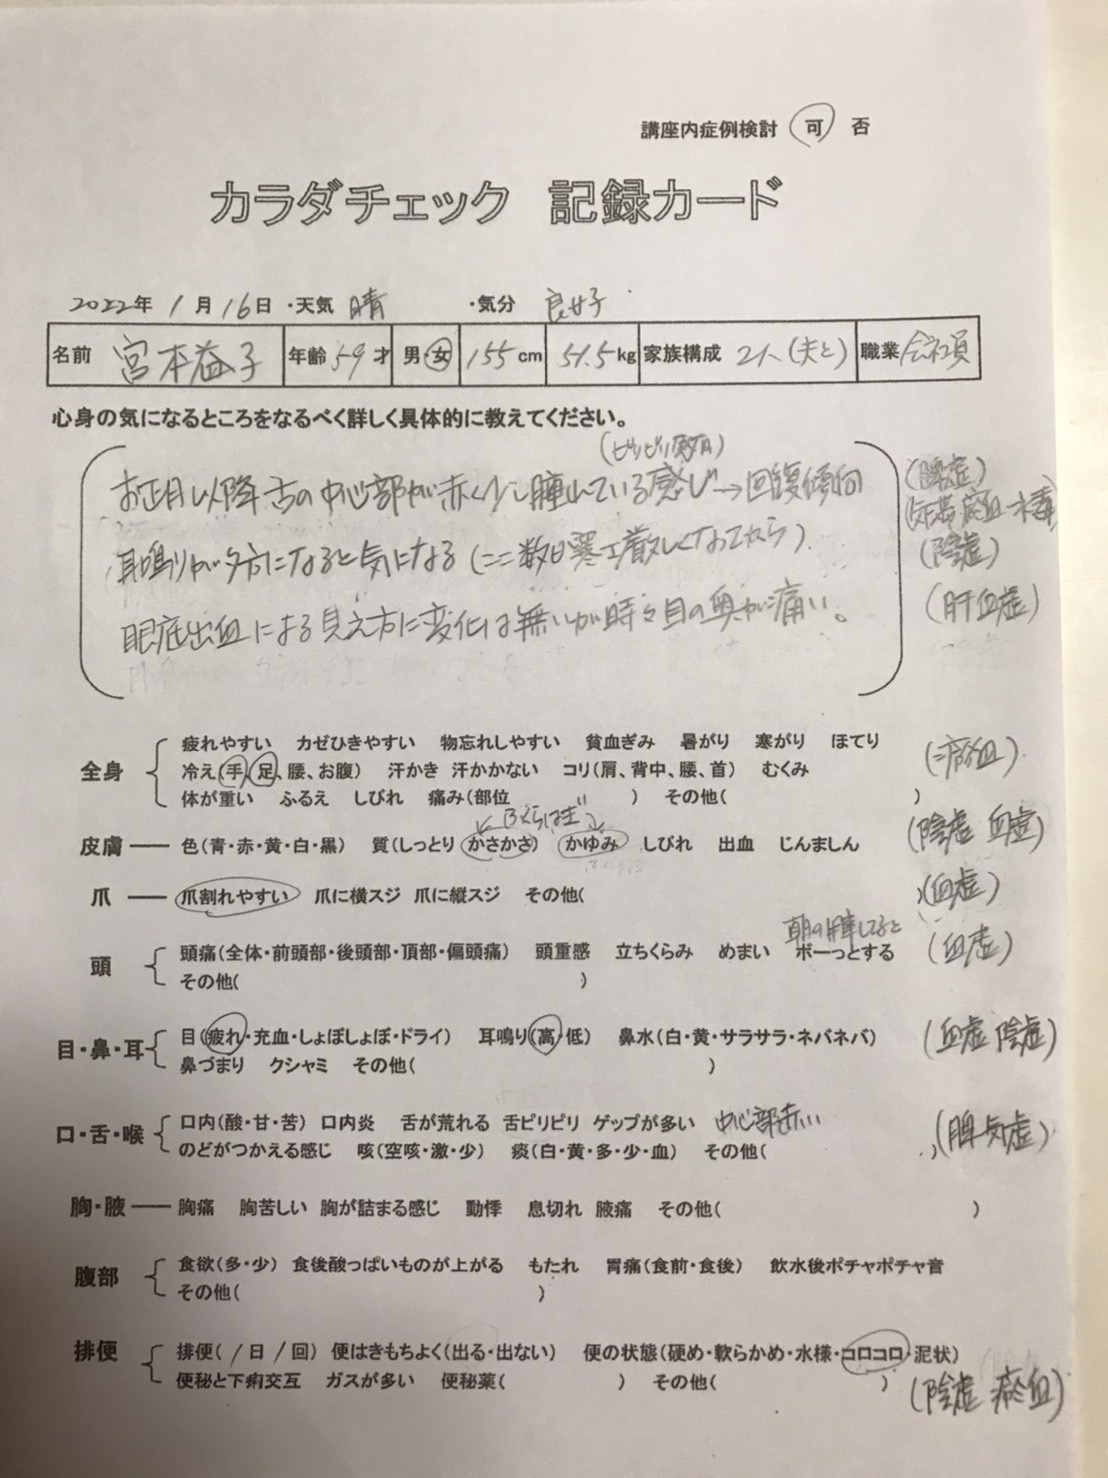 講座内症例検討 可 否
カラダチェック 記録カード
2022年 1月 16日 ・天気 晴 ・気分 良好
名前 宮本益子 年齢 59才 男・女 155cm 51.5kg 家族構成 2人(夫と) 職業 会社員
心身の気になるところをなるべく詳しく具体的に教えてください。
(ピリピリ)
お正月以降舌の中心部が赤く少し腫れている感じ→回復傾向
耳鳴りが夕方になると気になる(ここ数日寒さ厳しくなってから)
(陰虚)
眼底出血による見え方に変化は無いが時々目の奥が痛い。
(肝血虚)
全身 疲れやすい カゼひきやすい 物忘れしやすい 貧血ぎみ 暑がり 寒がり ほてり
冷え(手、足、腰、お腹) 汗かき 汗かかない コリ(肩、背中、腰、首) むくみ
(瘀血)
体が重い ふるえ しびれ 痛み(部位 ) その他( )
ふくらはぎ
皮膚 色(青・赤・黄・白・黒) 質(しっとり かさかさ) かゆみ しびれ 出血 じんましん (陰虚 血虚)
爪 爪割れやすい 爪に横スジ 爪に縦スジ その他( ) (血虚)
頭 頭痛(全体・前頭部・後頭部・頂部・偏頭痛) 頭重感 立ちくらみ めまい ボーっとする (血虚)
その他( )
目・鼻・耳 目(疲れ・充血・しょぼしょぼ・ドライ) 耳鳴り(高・低) 鼻水(白・黄・サラサラ・ネバネバ) (血虚 陰虚)
鼻づまり クシャミ その他( )
口・舌・喉 口内(酸・甘・苦) 口内炎 舌が荒れる 舌ピリピリ ゲップが多い 中心部赤い
のどがつかえる感じ 咳(空咳・激・少) 痰(白・黄・多・少・血) その他( ) (脾気虚)
胸・腋 胸痛 胸苦しい 胸が詰まる感じ 動悸 息切れ 腋痛 その他( )
腹部 食欲(多・少) 食後酸っぱいものが上がる もたれ 胃痛(食前・食後) 飲水後ポチャポチャ音
その他( )
排便 排便( /日 /回) 便はきもちよく(出る・出ない) 便の状態(硬め・軟らかめ・水様・コロコロ・泥状)
便秘と下痢交互 ガスが多い 便秘薬( ) その他( )
(陰虚 瘀血)